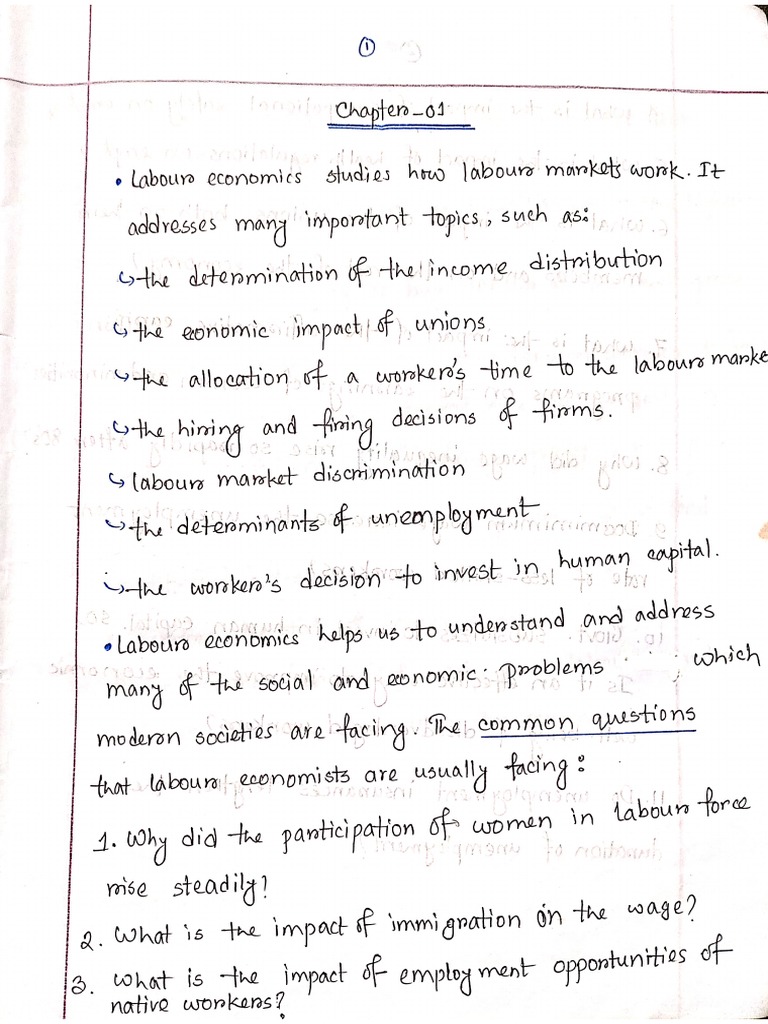 ①
Chapter-01
• Labour economics studies how labour markets work. It
addresses many important topics, such as:
↪ the determination of the income distribution
↪ the economic impact of unions
↪ the allocation of a worker's time to the labour marke
↪ the hiring and firing decisions of firms.
↪ labour market discrimination
↪ the determinants of unemployment
↪ the worker's decision to invest in human capital.
• Labour economics helps us to understand and address
many of the social and economic problems which
modern societies are facing. The common questions
that labour economists are usually facing:
1. Why did the participation of women in labour force
rise steadily?
2. What is the impact of immigration on the wage?
3. What is the impact of employment opportunities of
native workers?